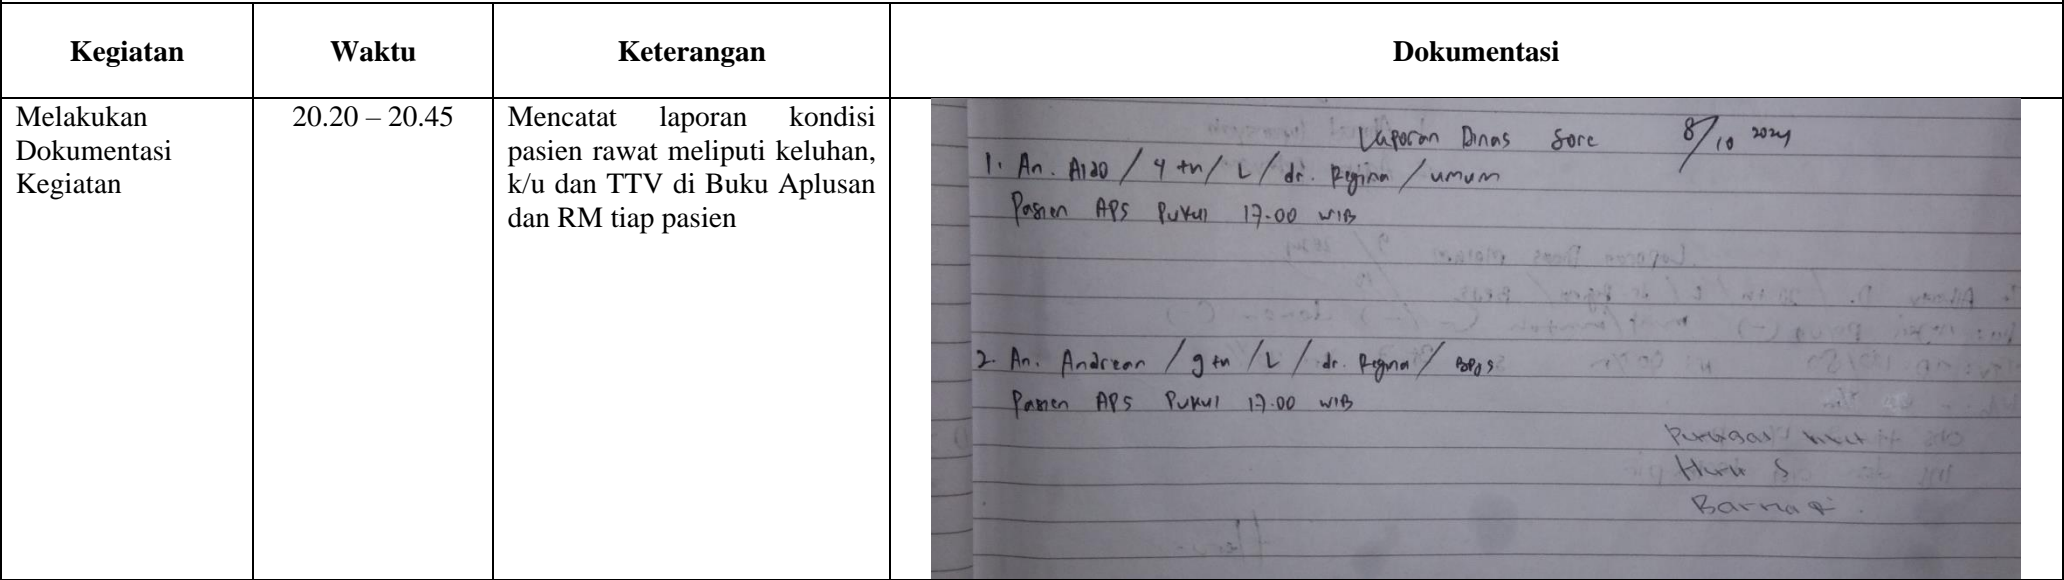 Kegiatan
Waktu
Keterangan
Dokumentasi
Melakukan
Dokumentasi
Kegiatan
20.20 – 20.45
Mencatat laporan kondisi
pasien rawat meliputi keluhan,
k/u dan TTV di Buku Aplusan
dan RM tiap pasien
Laporan Dinas Sore 8/10 2024
1. An. Aldo / 4 th / L / dr. Regina / umum
Pasien APS Pukul 17.00 WIB
2. An. Andrean / 9 th / L / dr. Regina / BPJS
Pasien APS Pukul 17.00 WIB